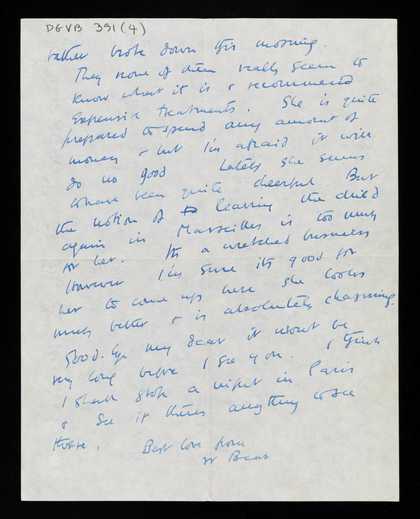 DGVB 391 (4)
rather broke down this morning.
They none of them really seem to
know what it is & recommend
expensive treatments. She is quite
prepared to spend any amount of
money & but I'm afraid it will
do no good Lately she seems
to have been quite cheerful But
the notion of leaving the child
again in Marseilles is too much
for her. It's a wretched business
However I'm sure its good for
her to come up here she looks
much better & is absolutely charming.
Good-bye my dear it wont be
very long before I see you. I think
I shall stop a night in Paris
& see if there's anything to see
there. Best love from
yr